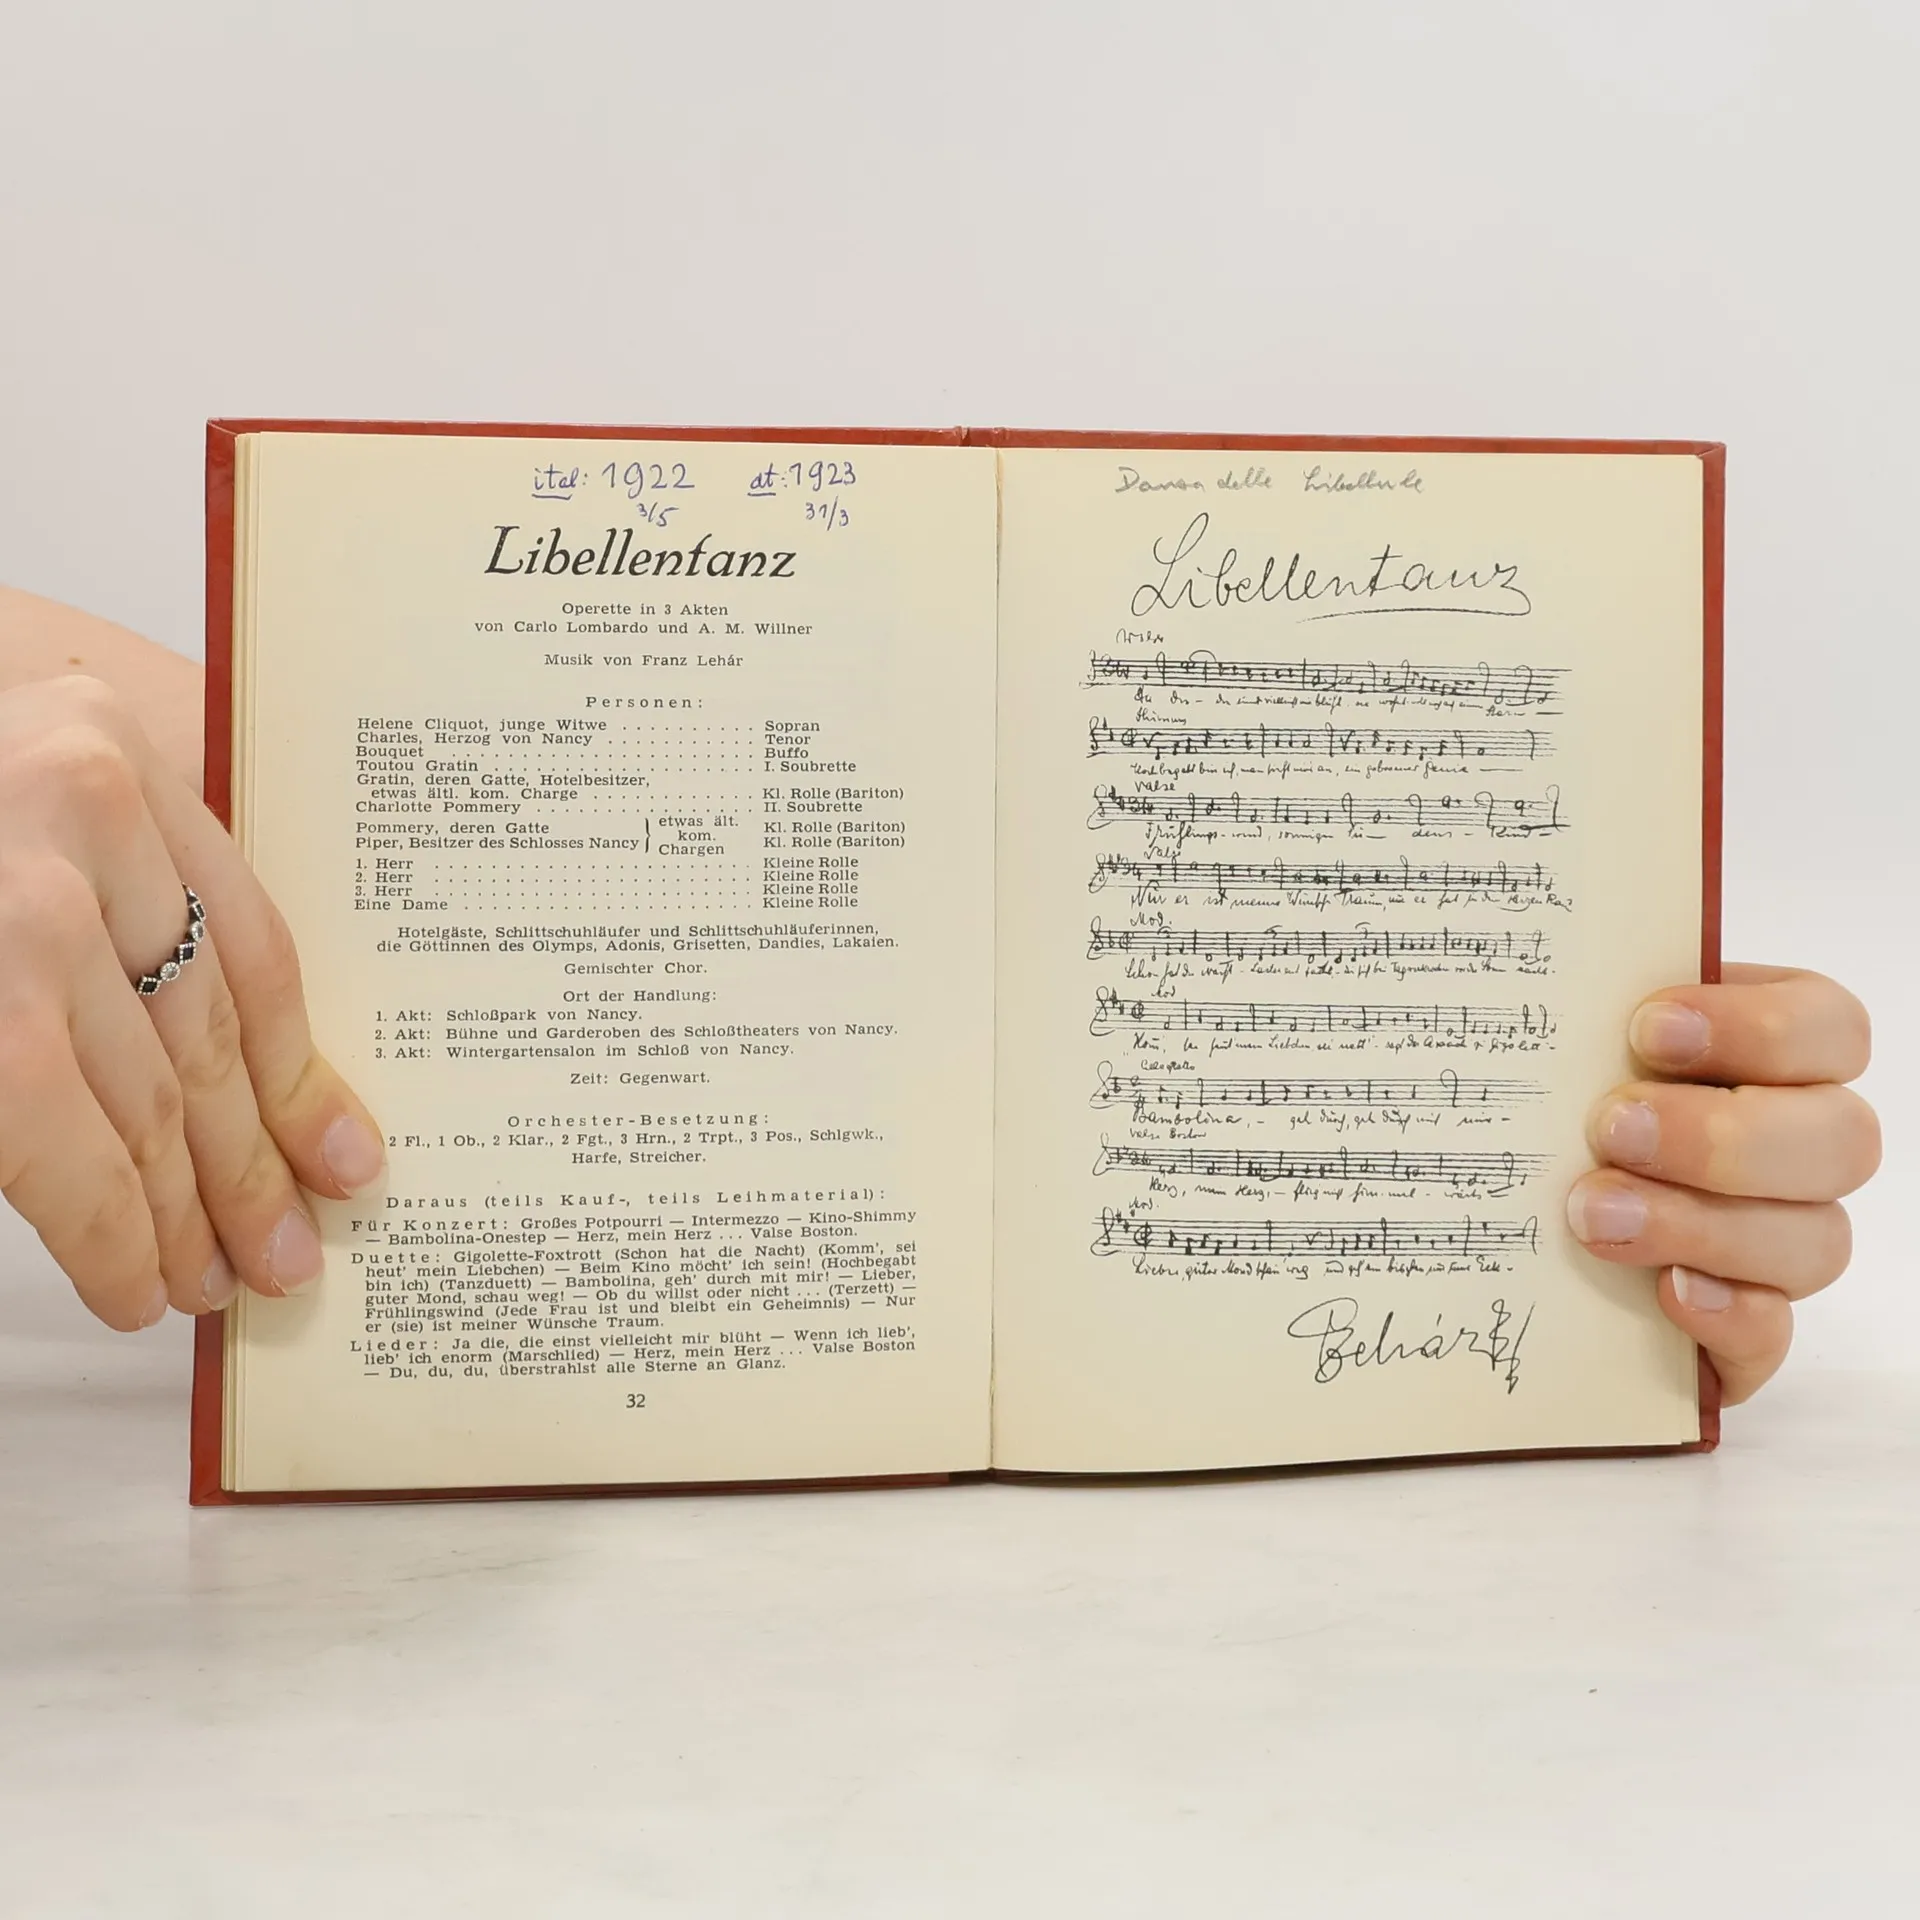 ital: 1922 dt: 1923
3/5 31/3
Libellentanz
Operette in 3 Akten
von Carlo Lombardo und A. M. Willner
Musik von Franz Lehár
Personen:
Helene Cliquot, junge Witwe . . . . . . . . . . Sopran
Charles, Herzog von Nancy . . . . . . . . . . . Tenor
Bouquet . . . . . . . . . . . . . . . . . . . . . . Buffo
Toutou Gratin . . . . . . . . . . . . . . . . . . . I. Soubrette
Gratin, deren Gatte, Hotelbesitzer,
etwas ältl. kom. Charge . . . . . . . . . . . . Kl. Rolle (Bariton)
Charlotte Pommery . . . . . . . . . . . . . . . . II. Soubrette
Pommery, deren Gatte etwas ält. Kl. Rolle (Bariton)
kom.
Piper, Besitzer des Schlosses Nancy Chargen Kl. Rolle (Bariton)
1. Herr . . . . . . . . . . . . . . . . . . . . . . . Kleine Rolle
2. Herr . . . . . . . . . . . . . . . . . . . . . . . Kleine Rolle
3. Herr . . . . . . . . . . . . . . . . . . . . . . . Kleine Rolle
Eine Dame . . . . . . . . . . . . . . . . . . . . . Kleine Rolle
Hotelgäste, Schlittschuhläufer und Schlittschuhläuferinnen,
die Göttinnen des Olymps, Adonis, Grisetten, Dandies, Lakaien.
Gemischter Chor.
Ort der Handlung:
1. Akt: Schloßpark von Nancy.
2. Akt: Bühne und Garderoben des Schloßtheaters von Nancy.
3. Akt: Wintergartensalon im Schloß von Nancy.
Zeit: Gegenwart.
Orchester-Besetzung:
2 Fl., 1 Ob., 2 Klar., 2 Fgt., 3 Hrn., 2 Trpt., 3 Pos., Schlgwk.,
Harfe, Streicher.
Daraus (teils Kauf-, teils Leihmaterial):
Für Konzert: Großes Potpourri — Intermezzo — Kino-Shimmy
— Bambolina-Onestep — Herz, mein Herz ... Valse Boston.
Duette: Gigolette-Foxtrott (Schon hat die Nacht) (Komm', sei
heut' mein Liebchen) — Beim Kino möcht' ich sein! (Hochbegabt
bin ich) (Tanzduett) — Bambolina, geh' durch mit mir! — Lieber,
guter Mond, schau weg! — Ob du willst oder nicht ... (Terzett) —
Frühlingswind (Jede Frau ist und bleibt ein Geheimnis) — Nur
er (sie) ist meiner Wünsche Traum.
Lieder: Ja die, die einst vielleicht mir blüht — Wenn ich lieb',
lieb' ich enorm (Marschlied) — Herz, mein Herz ... Valse Boston
— Du, du, du, überstrahlst alle Sterne an Glanz.
32
Danza delle Libellule
Libellentanz
Valse
Frühlings-wind, sonnigen
Valse
Nur er ist meiner Wünsche Traum,
Mod.
Schon hat die Nacht
Mod
Bambolina, - geh durch, geh durch mit mir -
Valse Boston
Herz, mein Herz, -
Mod.
Lieber, guter Mond
Lehár